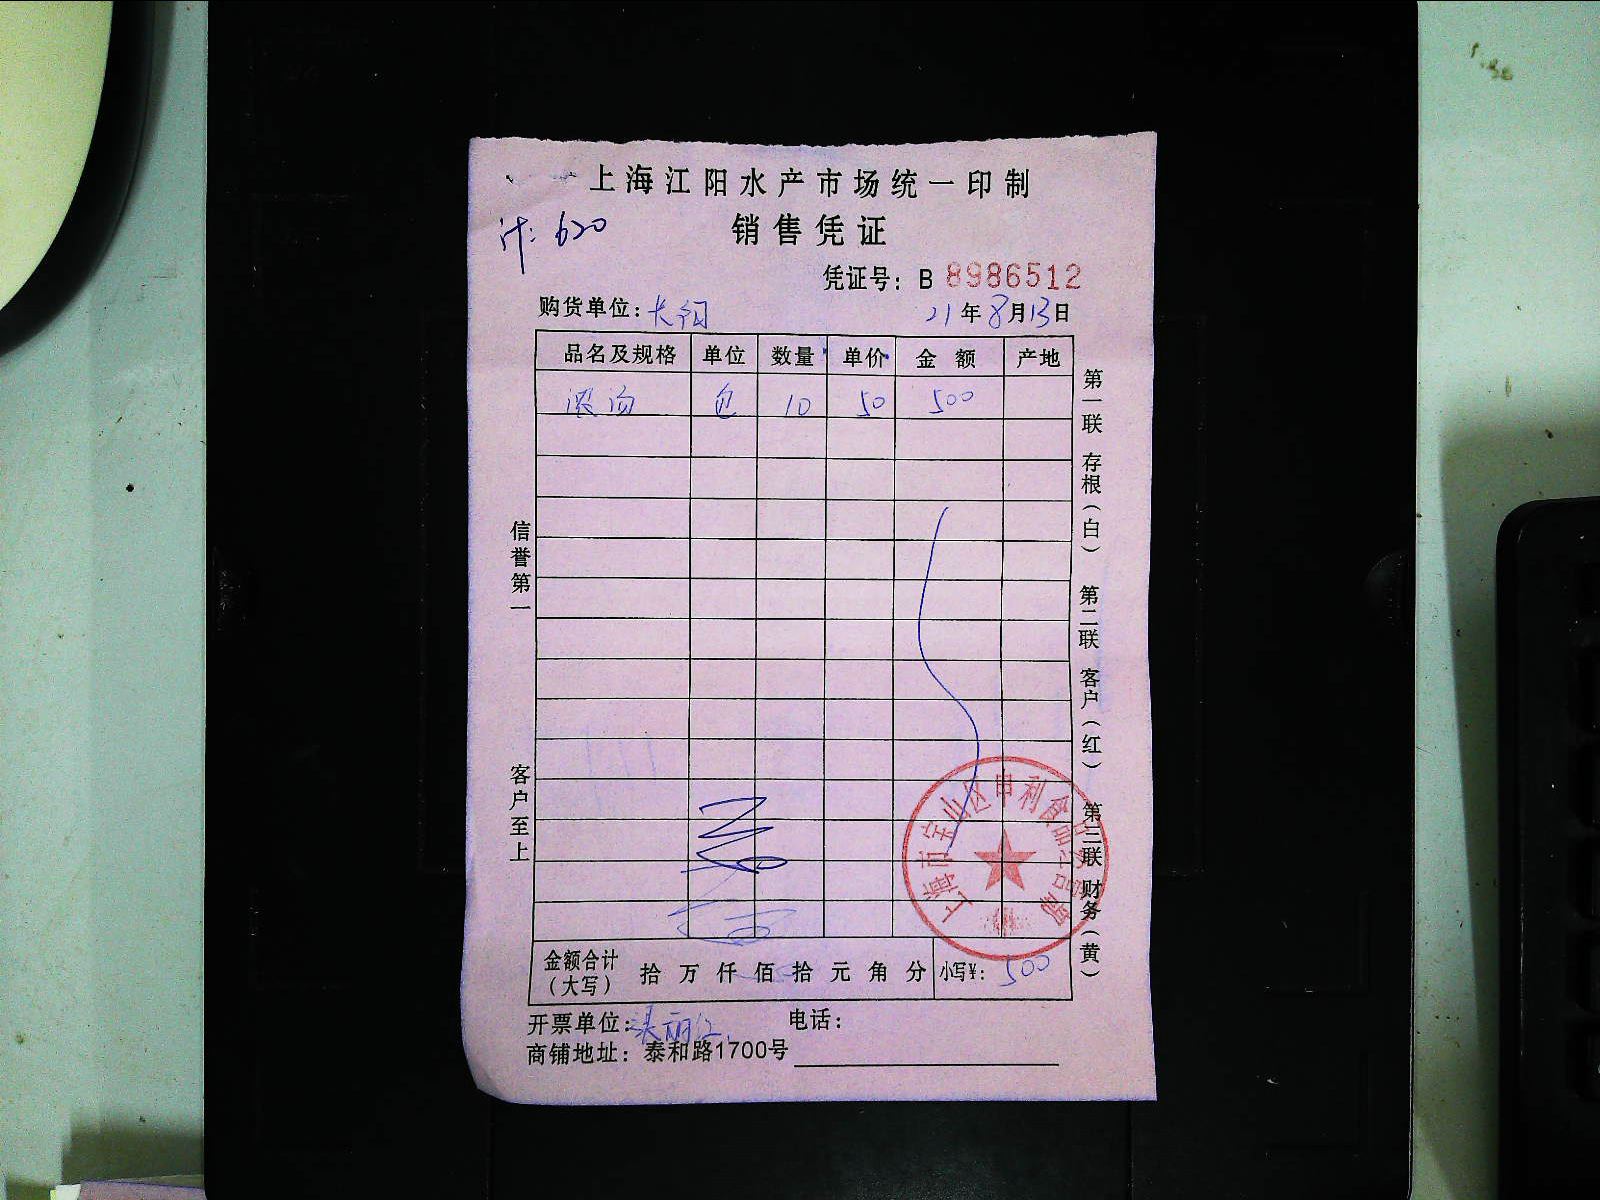 上海江阳水产市场统一印制
计: 620
销售凭证
凭证号: B 8986512
购货单位:
21年8月13日
品名及规格 单位 数量 单价 金额 产地
浓汤 包 10 50 500
信誉第一 客户至上
第一联 存根(白) 第二联 客户(红) 第三联 财务(黄)
上海市宝山区申利食品经营部
金额合计(大写) 拾 万 仟 佰 拾 元 角 分 小写¥: 500
开票单位:
电话:
商铺地址: 泰和路1700号